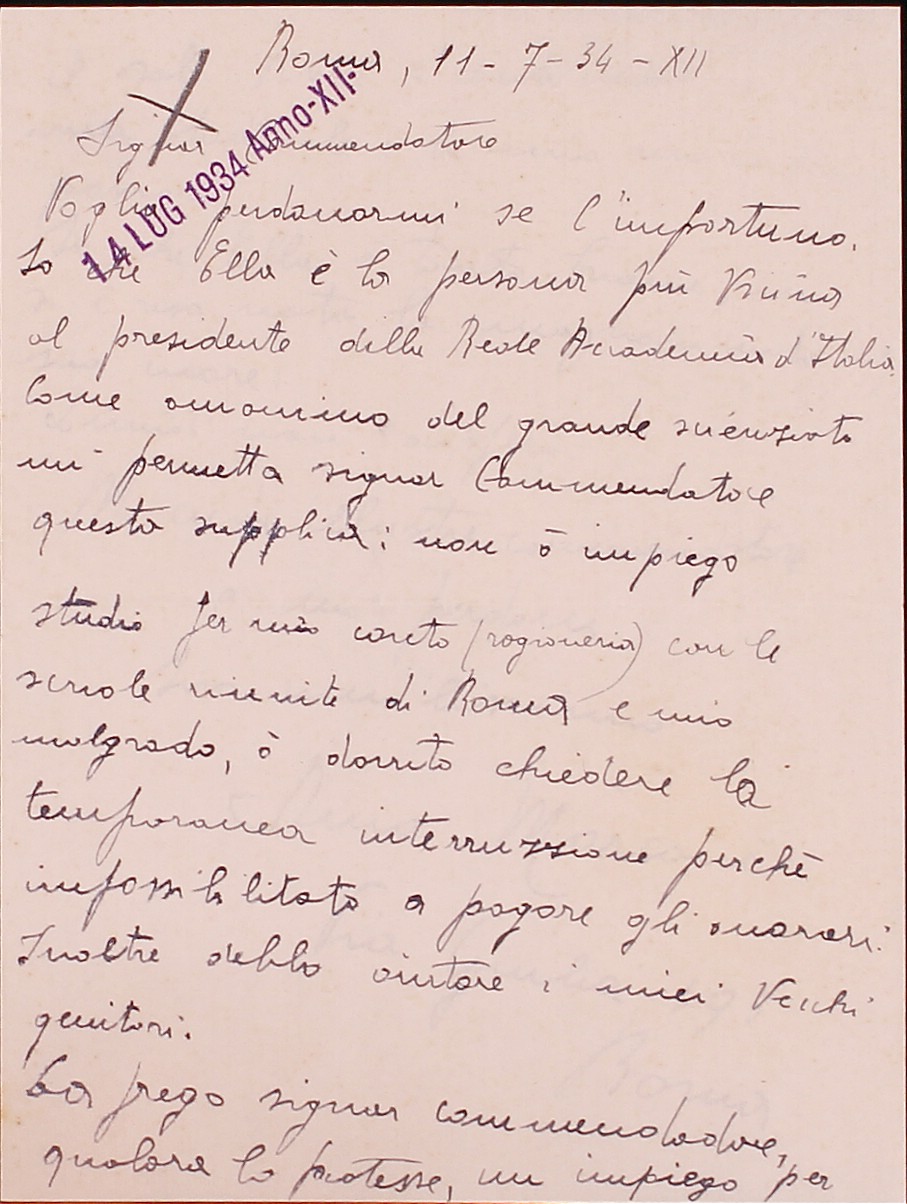 Roma, 11-7-34-XII
14 LUG 1934 Anno-XII-
Signor Commendatore
Voglia perdonarmi se l'importuno.
So che Ella è la persona più Vicina
al presidente della Reale Accademia d'Italia.
Come omonimo del grande scienziato
mi permetta signor Commendatore
questa supplica: non ò impiego
studio per mio conto (ragioneria) con le
scuole riunite di Roma e mio
malgrado, ò dovuto chiedere la
temporanea interruzzione perchè
impossibilitato a pagare gli onorari.
Inoltre debbo aiutare i miei Vecchi
genitori.
La prego signor commendadore,
qualora lo potesse, un impiego per